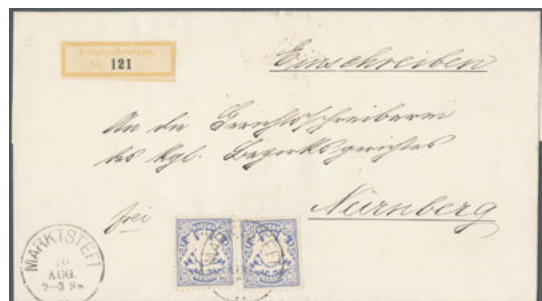 Eingeschrieben.
No. 121
Einschreiben
An die Gerichtsschreiberei
des kgl. Bezirksgerichtes
frei
Nürnberg
MARKTSTEFT
AUG.
2-3 Nm